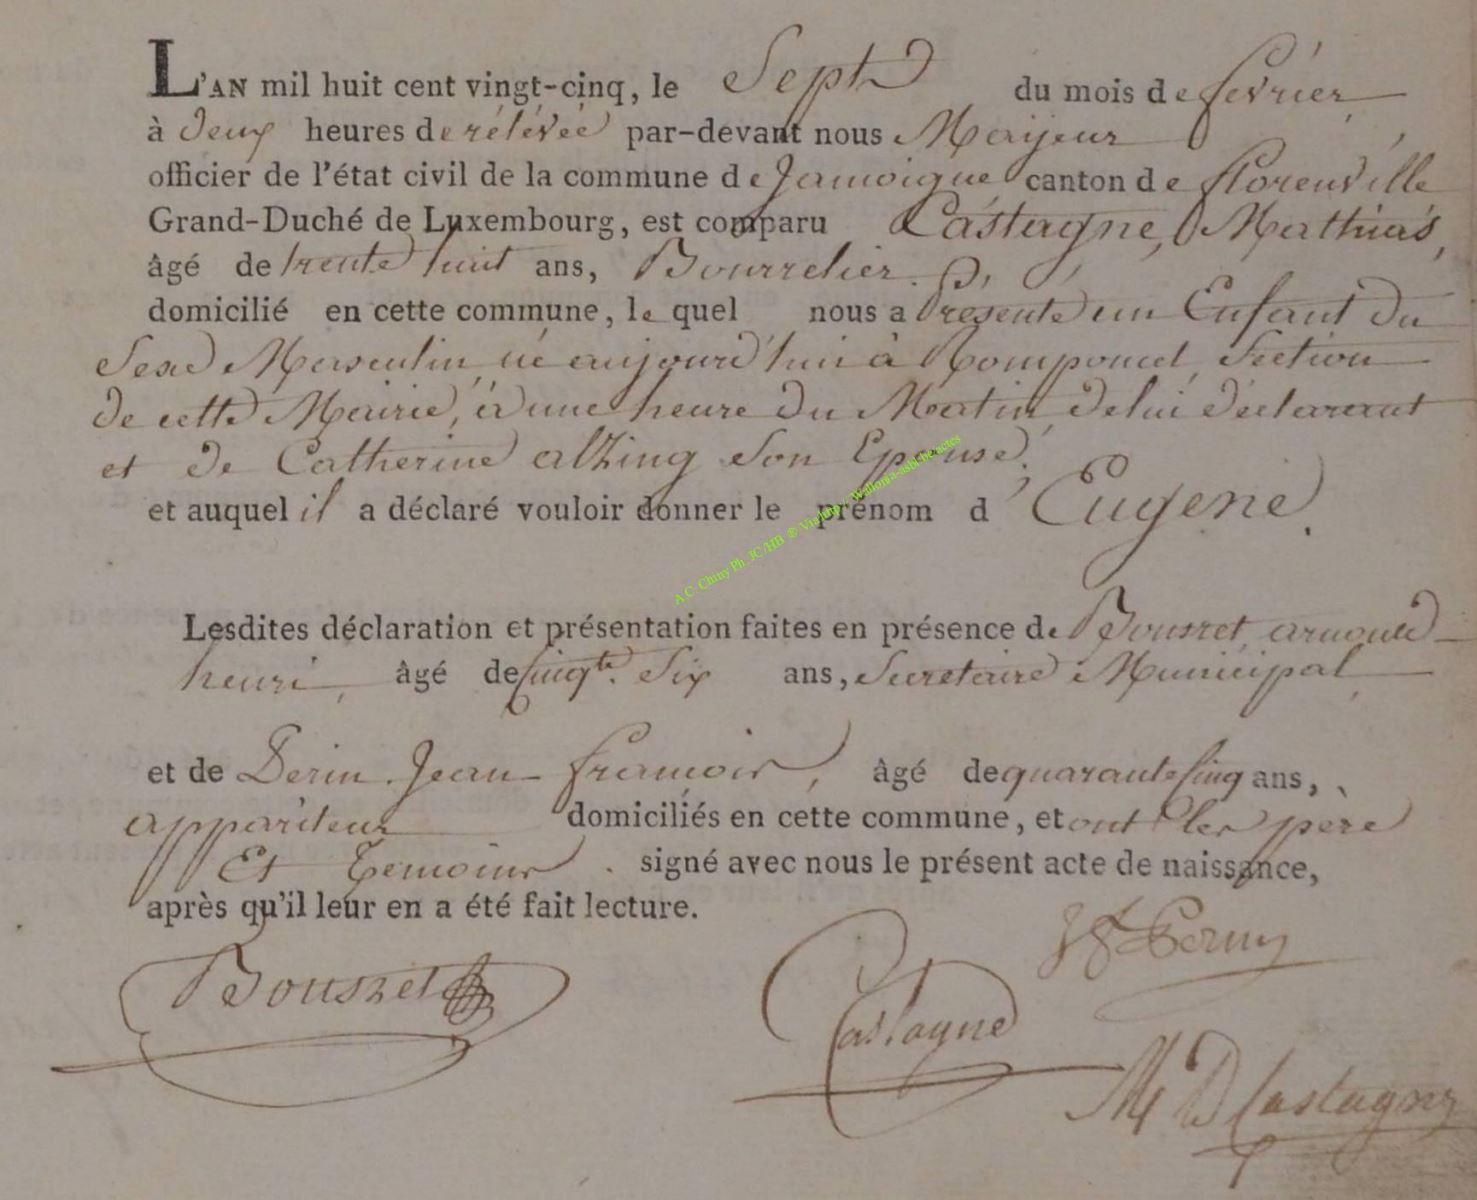 L'AN mil huit cent vingt-cinq, le Sept du mois de fevrier
à deux heures de rélévée par-devant nous Maijeur
officier de l'état civil de la commune de Jamoigne canton de florenville
Grand-Duché de Luxembourg, est comparu Castagne, Mathias,
âgé de trente huit ans, Bourrelier.
domicilié en cette commune, le quel nous a Présenté un Enfant du
Sexe Masculin, né aujourd'hui à Romponcel, Section
de cette Mairie, à une heure du Matin, de lui déclarant
et de Catherine alzing Son Epouse,
et auquel il a déclaré vouloir donner le prénom d'Eugene.
A.C. Chiny Ph. JC/HB ® Via http:/ Wallonia-asbl-be/actes
Lesdites déclaration et présentation faites en présence de Bousret, arnould
henri, âgé de Cinqte. Six ans, Secretaire Municipal,
et de Perin Jean francois, âgé de quarante Cinq ans,
appariteur domiciliés en cette commune, et ont les pere
Et temoins. signé avec nous le présent acte de naissance,
après qu'il leur en a été fait lecture.
Bousret
Castagne
M D Castagne